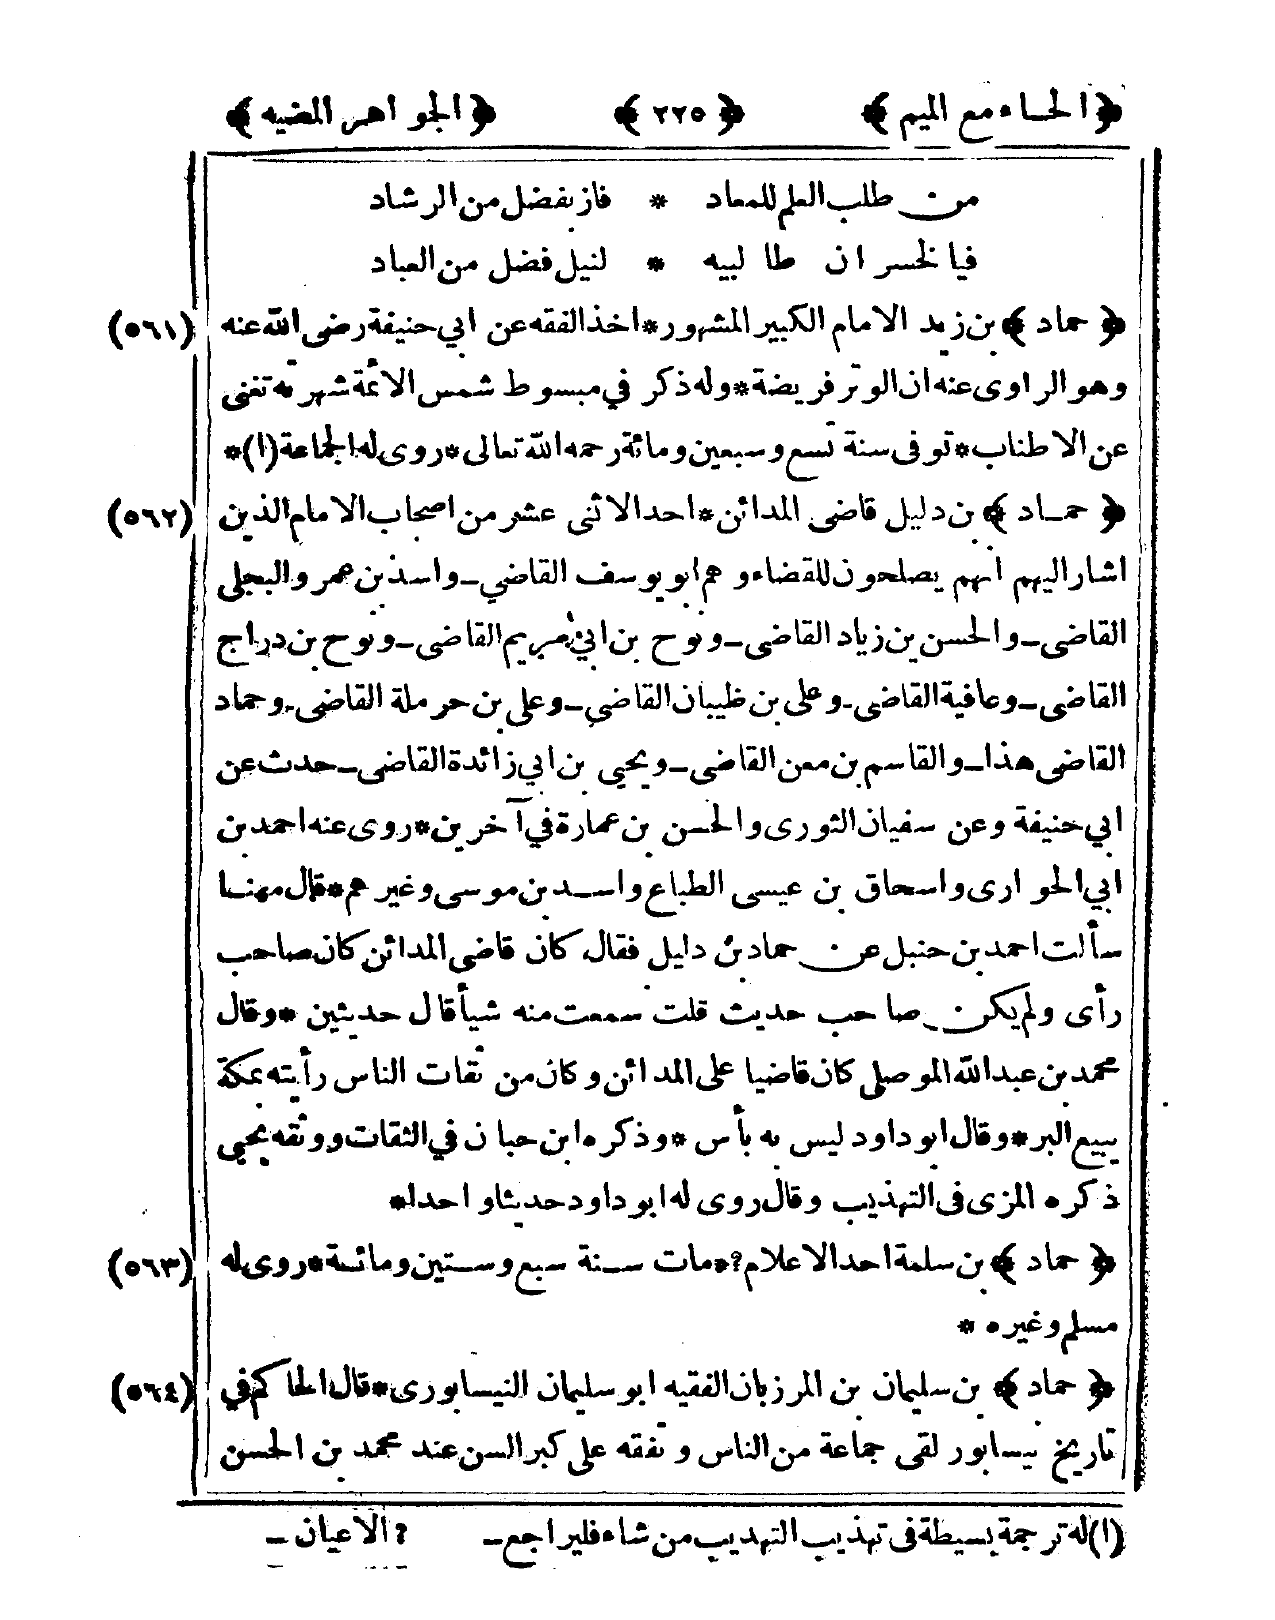 ﴿ الحاء مع الميم ﴾ ﴿ ٢٢٥ ﴾ ﴿ الجواهر المضيه ﴾
من طلب العلم للمعاد * فاز بفضل من الرشاد
فيا لخسران طالبيه * لنيل فضل من العباد
﴿ حماد ﴾ بن زيد الامام الكبير المشهور * اخذ الفقه عن ابي حنيفة رضى الله عنه (٥٦١)
وهو الراوى عنه ان الوتر فريضة * وله ذكر في مبسوط شمس الأئمة شهرته تغنى
عن الاطناب * توفى سنة تسع وسبعين ومائة رحمه الله تعالى * روى له الجماعة (١) *
﴿ حماد ﴾ بن دليل قاضى المدائن * احد الاثنى عشر من اصحاب الامام الذين (٥٦٢)
اشار اليهم انهم يصلحون للقضاء وهم ابو يوسف القاضي ـ واسد بن عمرو البجلى
القاضى ـ والحسن بن زياد القاضى ـ ونوح بن ابي مريم القاضى ـ ونوح بن دراج
القاضى ـ وعافية القاضى ـ وعلى بن ظبيان القاضي ـ وعلى بن حرملة القاضى ـ وحماد
القاضى هذا ـ والقاسم بن معن القاضى ـ ويحيى بن ابي زائدة القاضى ـ حدث عن
ابي حنيفة وعن سفيان الثورى والحسن بن عمارة في آخرين * روى عنه احمد بن
ابي الحوارى واسحاق بن عيسى الطباع واسد بن موسى وغيرهم * قال مهنا
سألت احمد بن حنبل عن حماد بن دليل فقال كان قاضى المدائن كان صاحب
رأى ولم يكن صاحب حديث قلت سمعت منه شيأ قال حديثين * وقال
محمد بن عبد الله الموصلى كان قاضيا على المدائن وكان من ثقات الناس رأيته بمكة
يبيع البر * وقال ابو داود ليس به بأس * وذكره ابن حبان في الثقات ووثقه يحيى
ذكره المزى فى التهذيب وقال روى له ابو داود حديثا واحدا *
﴿ حماد ﴾ بن سلمة احد الاعلام ? * مات سنة سبع وستين ومائة * روى له (٥٦٣)
مسلم وغيره *
﴿ حماد ﴾ بن سليمان بن المرزبان الفقيه ابو سليمان النيسابورى * قال الحاكم في (٥٦٤)
تاريخ نيسابور لقى جماعة من الناس وتفقه على كبر السن عند محمد بن الحسن
(١) له ترجمة بسيطة فى تهذيب التهذيب من شاء فليراجع ـ ? الاعيان ـ